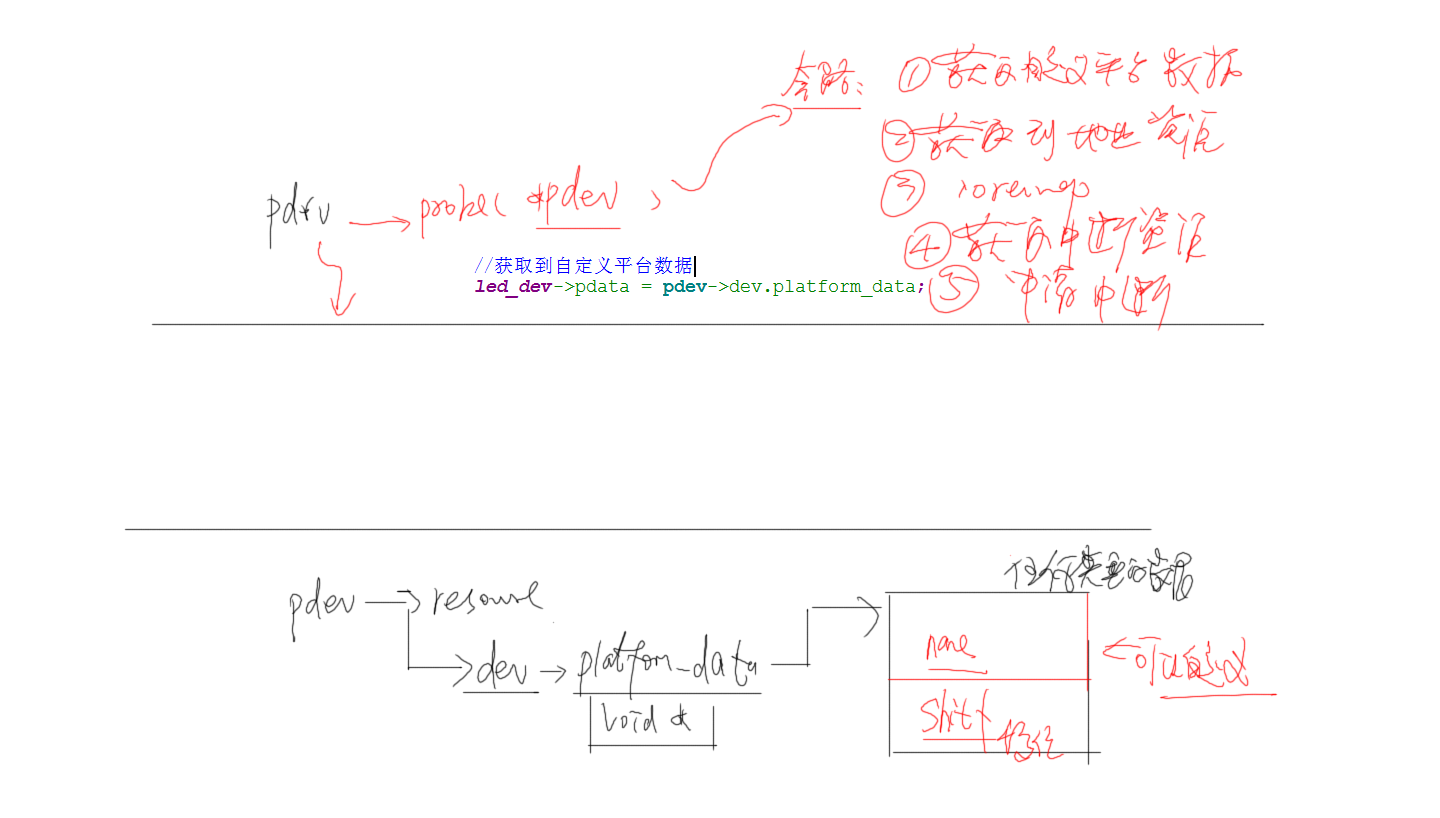 套路: ① 获取自定义平台数据
② 获取到地址资源
③ ioremap
④ 获取中断资源
⑤ 申请中断
pdrv → probe( *pdev )
//获取到自定义平台数据
led_dev->pdata = pdev->dev.platform_data;
任何类型的数据
pdev → resource
dev → platform_data
void *
name
shift 移位
可以自定义